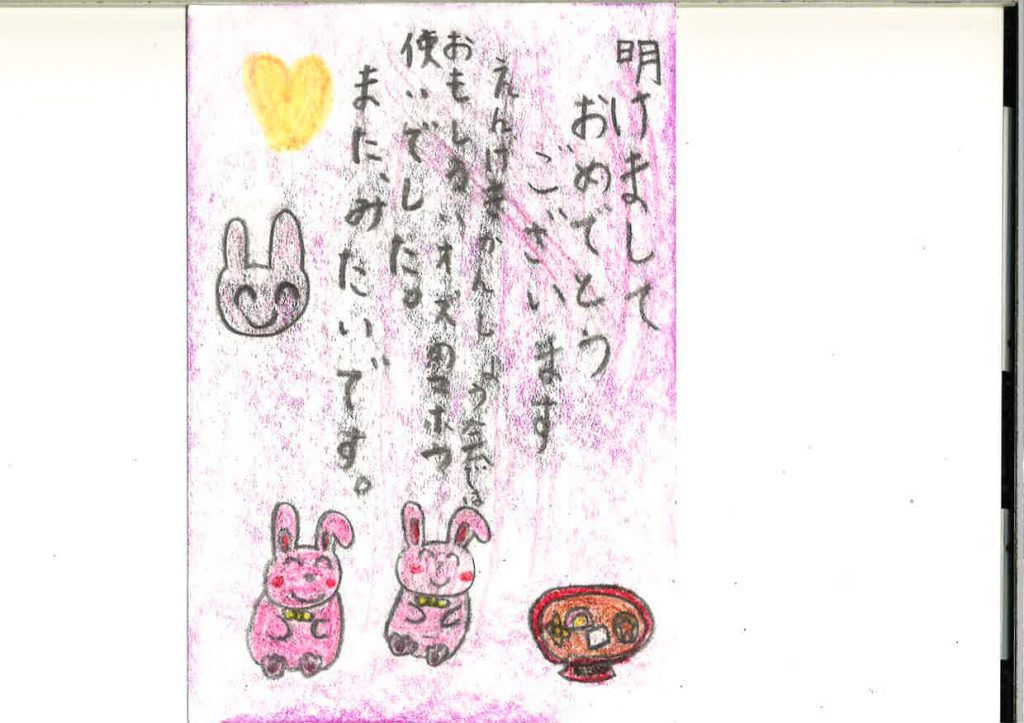 明けまして
おめでとう
ございます
えんげきかんしょう会では
おもしろいオズのマホウ
使いでした。
また、みたいです。